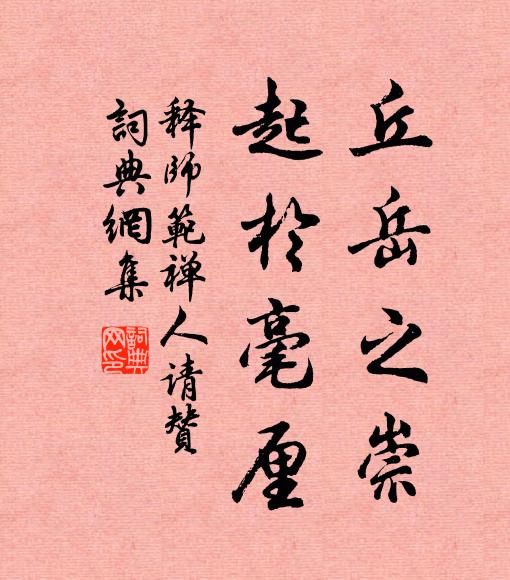 丘岳之崇
起於毫厘
释師範禅人请賛
詞典網集
詞典网印